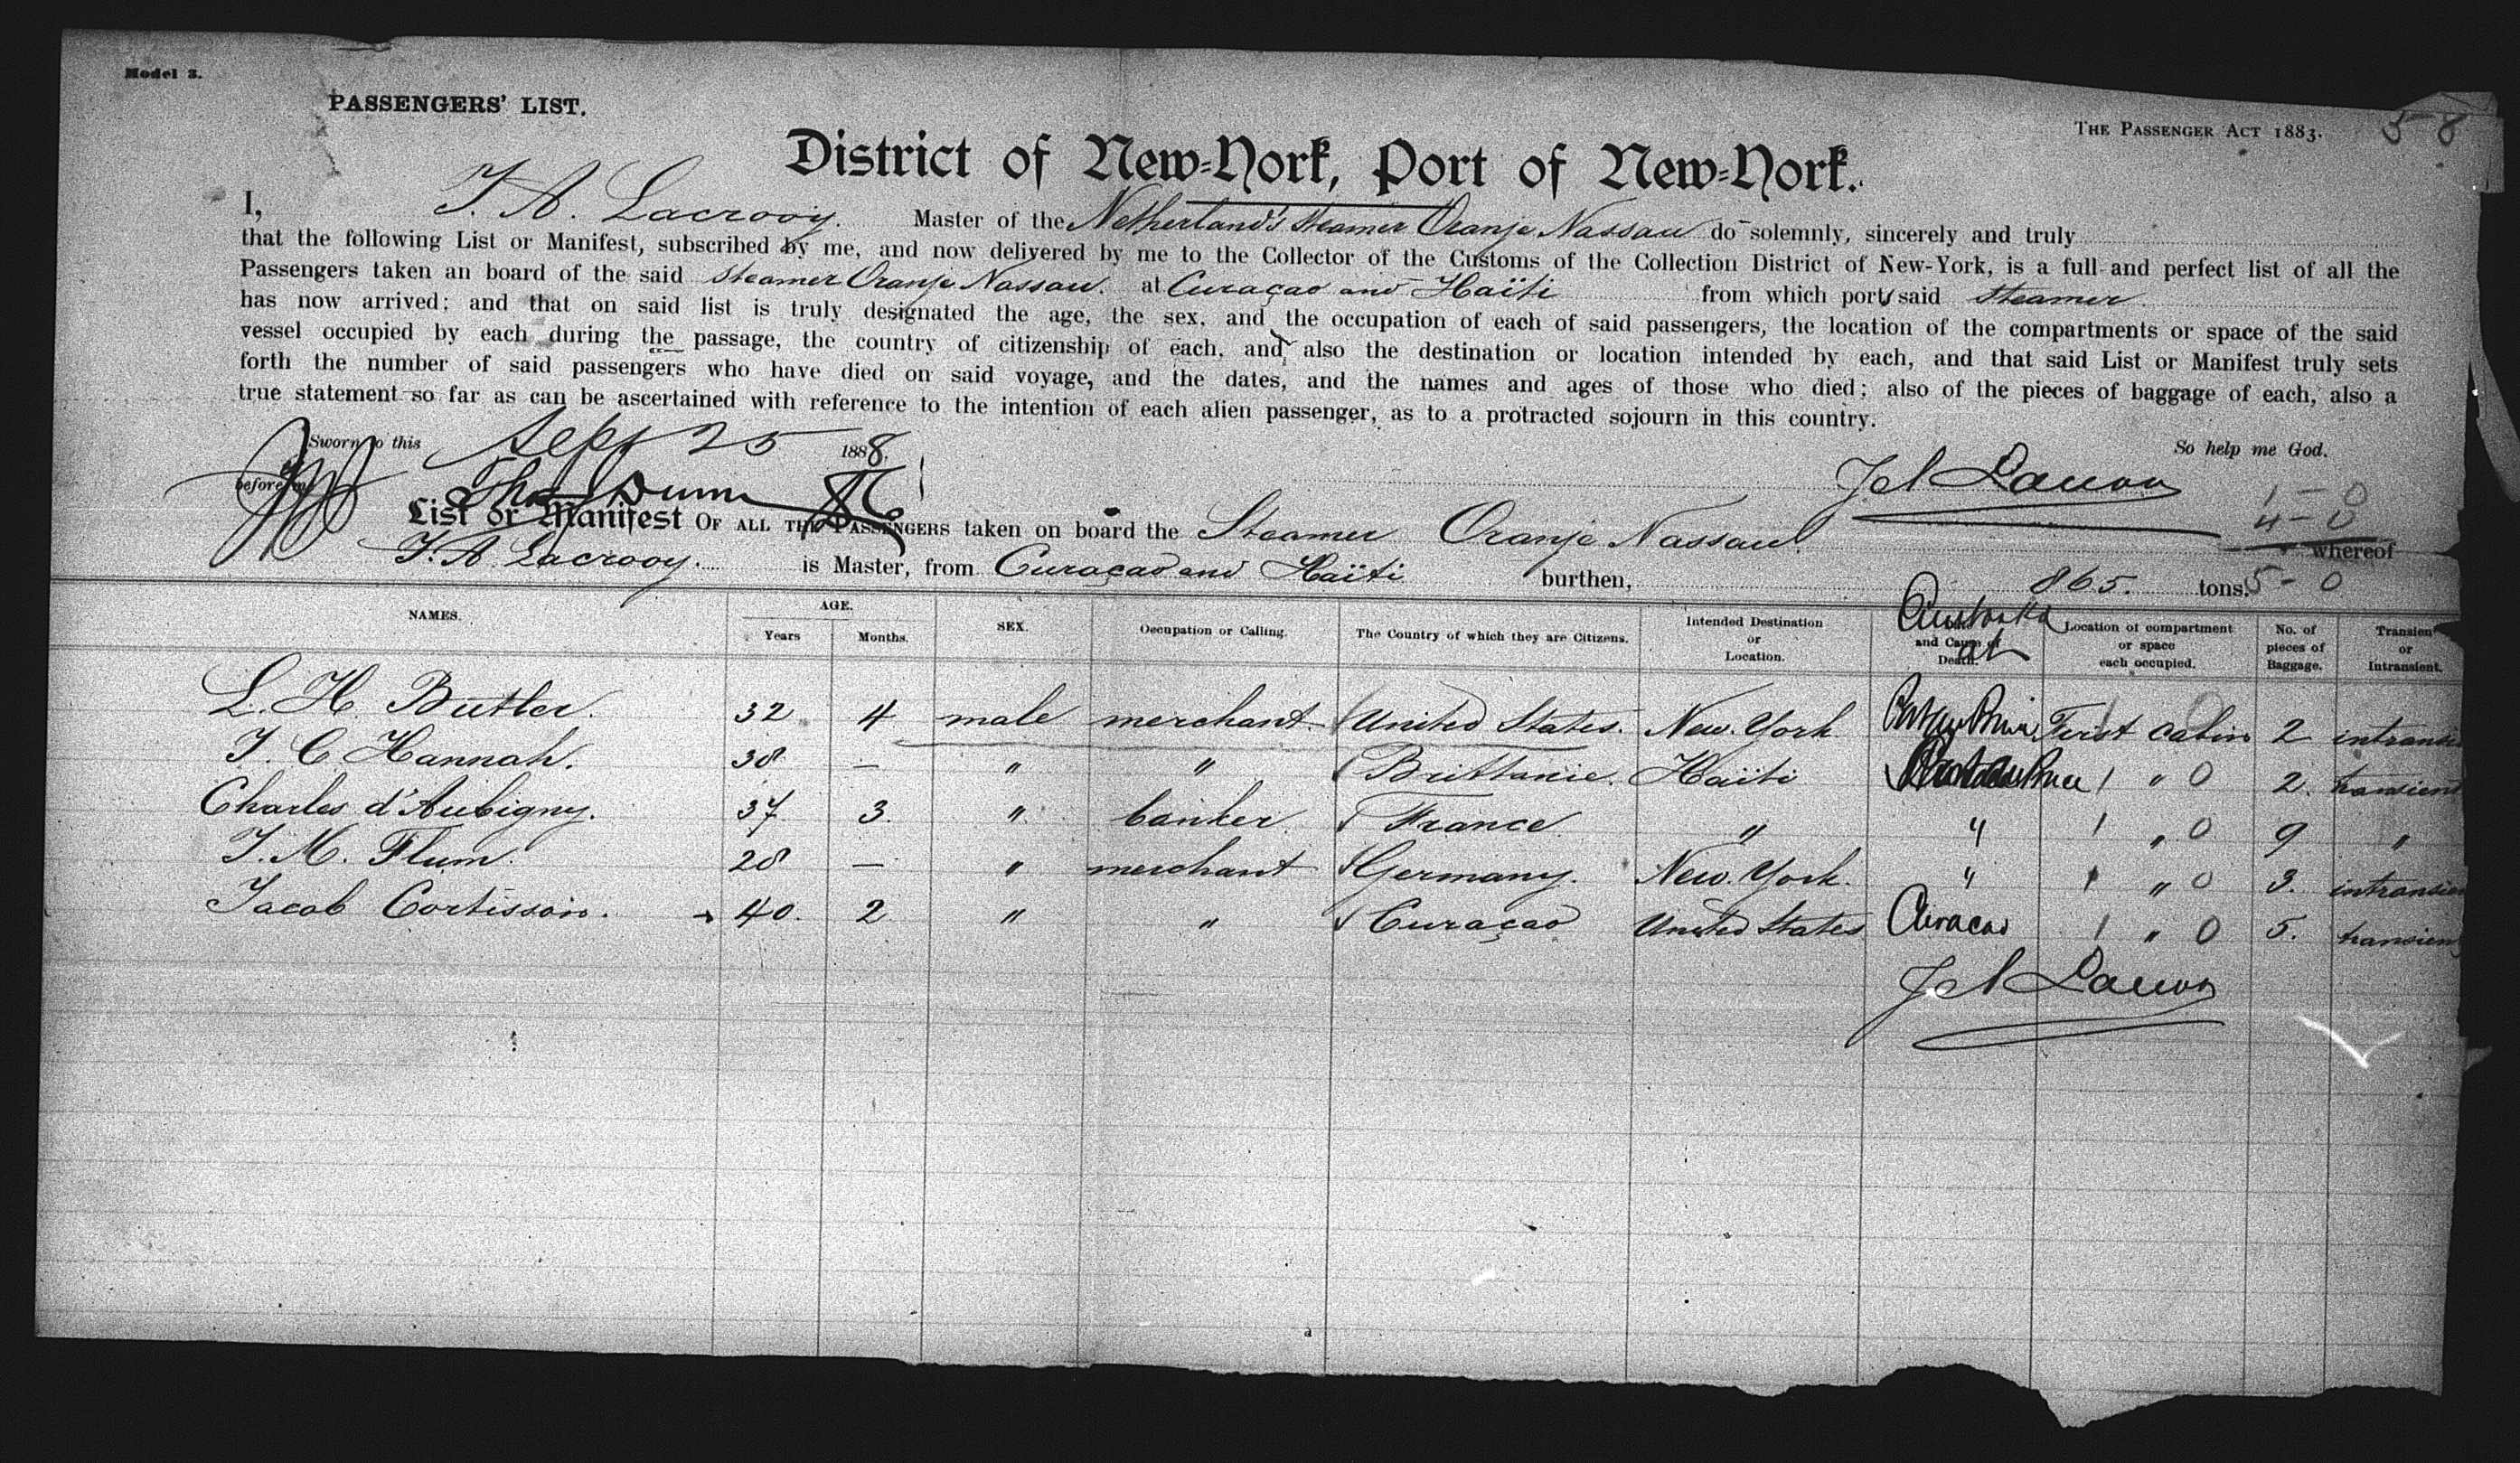 Model 3.
PASSENGERS' LIST.
THE PASSENGER ACT 1883.
5-8
District of New-York, Port of New-York.
I, J. A. Lacrooy. Master of the Netherland's steamer Oranje Nassau do solemnly, sincerely and truly
that the following List or Manifest, subscribed by me, and now delivered by me to the Collector of the Customs of the Collection District of New-York, is a full and perfect list of all the
Passengers taken an board of the said steamer Oranje Nassau. at Curaçao and Haïti from which port/s said steamer
has now arrived; and that on said list is truly designated the age, the sex, and the occupation of each of said passengers, the location of the compartments or space of the said
vessel occupied by each during the passage, the country of citizenship of each, and also the destination or location intended by each, and that said List or Manifest truly sets
forth the number of said passengers who have died on said voyage, and the dates, and the names and ages of those who died; also of the pieces of baggage of each, also a
true statement so far as can be ascertained with reference to the intention of each alien passenger, as to a protracted sojourn in this country.
Sworn to this Sept 25 1888.
So help me God.
before me
Thos Dunn
1-0
4-0
List or Manifest OF ALL THE PASSENGERS taken on board the Steamer Oranje Nassau whereof
J. A. Lacrooy. is Master, from Curaçao and Haïti burthen, 865. tons. 5-0
NAMES. AGE. Years Months. SEX. Occupation or Calling. The Country of which they are Citizens. Intended Destination or Location. and Cause of Death. at Location of compartment or space each occupied. No. of pieces of Baggage. Transien or Intransient.
L. H. Butler. 32 4 male merchant. United States. New. York Port au Prince First cabin 2 intransi
J. C. Hannah. 38 — " " Brittanie. Haïti Port au Prince 1 " 0 2. transient
Charles d'Aubigny. 37 3. " banker. France " " 1 " 0 9 "
J. M. Flum. 28 — " merchant Germany. New. York. " 1 " 0 3. intransien
Jacob Cortissoin. 40. 2 " " Curaçao United States Curacao 1 " 0 5. transien